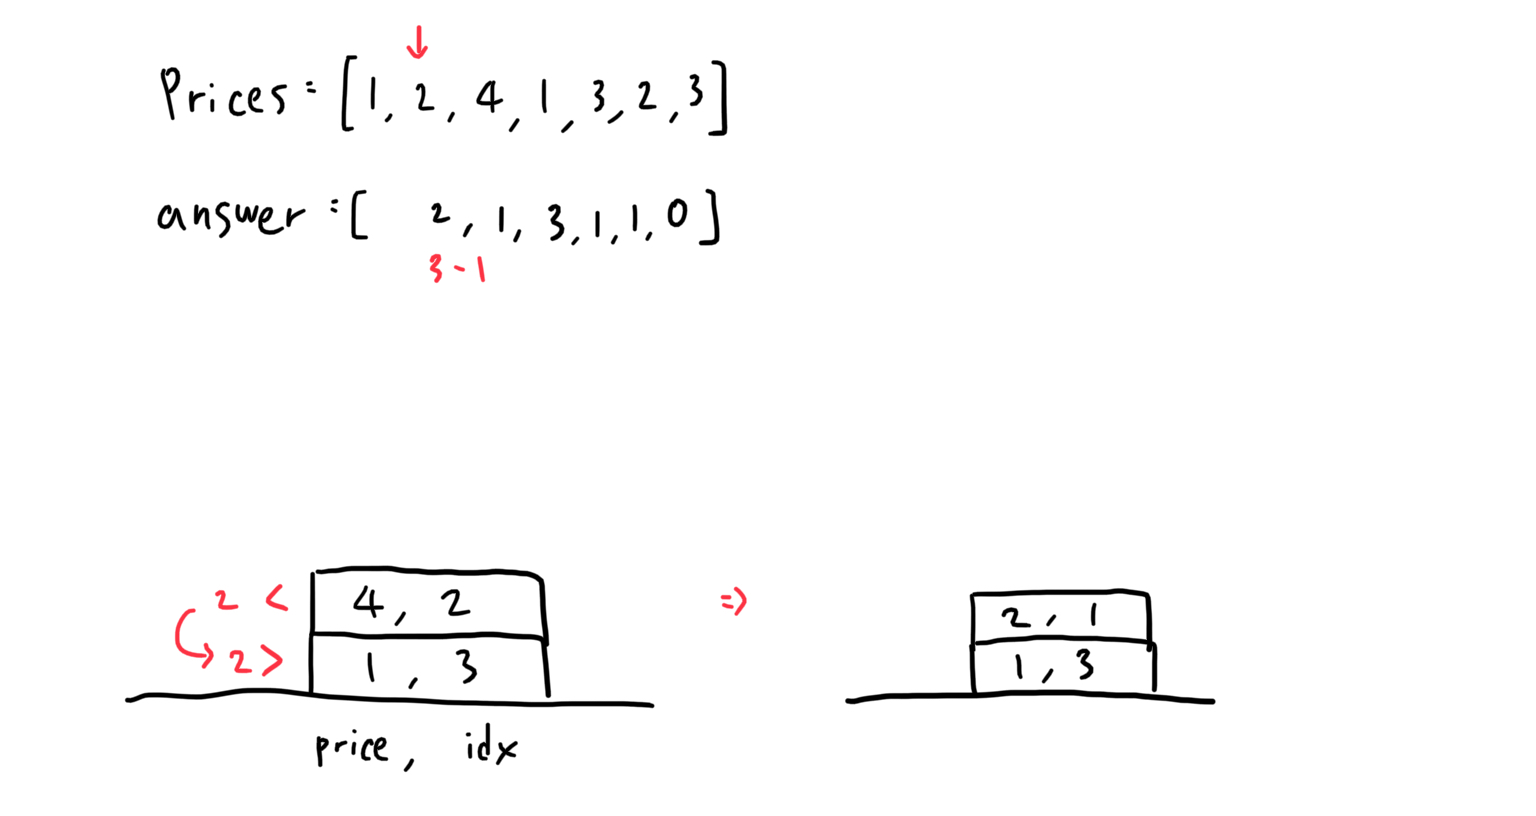 ↓
Prices = [1, 2, 4, 1, 3, 2, 3]
answer = [ 2, 1, 3, 1, 1, 0]
3 - 1
2 < 4, 2 ⇒ 2, 1
2 > 1, 3 1, 3
price, idx